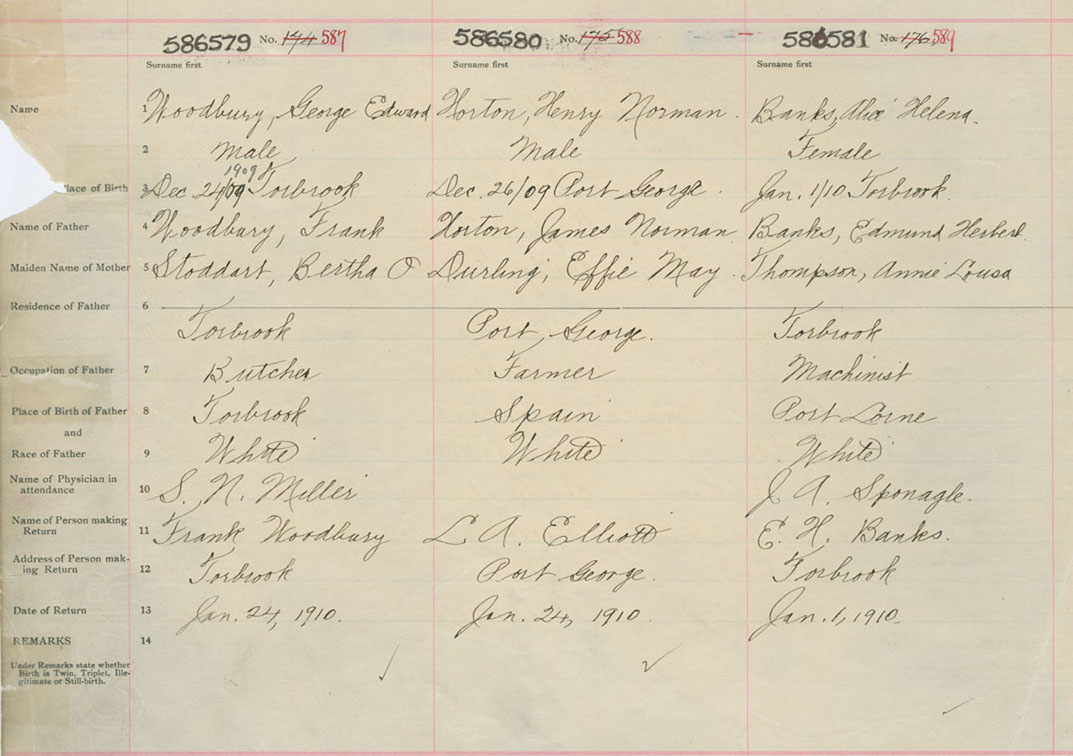 586579 No. 174 587 586580 No. 175 588 586581 No. 176 589
Surname first Surname first Surname first
Name 1 Woodbury, George Edward Horton, Henry Norman. Banks, Alice Helena.
2 Male Male Female
1909
Place of Birth 3 Dec 24/09 Torbrook Dec. 26/09 Port George. Jan. 1/10 Torbrook.
Name of Father 4 Woodbury, Frank Horton, James Norman. Banks, Edmund Herbert.
Maiden Name of Mother 5 Stoddart, Bertha O Durling, Effie May. Thompson, Annie Lousa
Residence of Father 6
Torbrook Port George. Torbrook
Occupation of Father 7 Butcher Farmer Machinist
Place of Birth of Father 8 Torbrook Spain Port Lorne
and
Race of Father 9 White White White
Name of Physician in
attendance 10 S. N. Miller J. A. Sponagle.
Name of Person making
Return 11 Frank Woodbury L. A. Elliott E. H. Banks.
Address of Person mak-
ing Return 12 Torbrook Port George. Torbrook
Date of Return 13 Jan. 24, 1910. Jan. 24, 1910 Jan. 1, 1910.
REMARKS 14
Under Remarks state whether
Birth is Twin, Triplet, Ille-
gitimate or Still-birth.